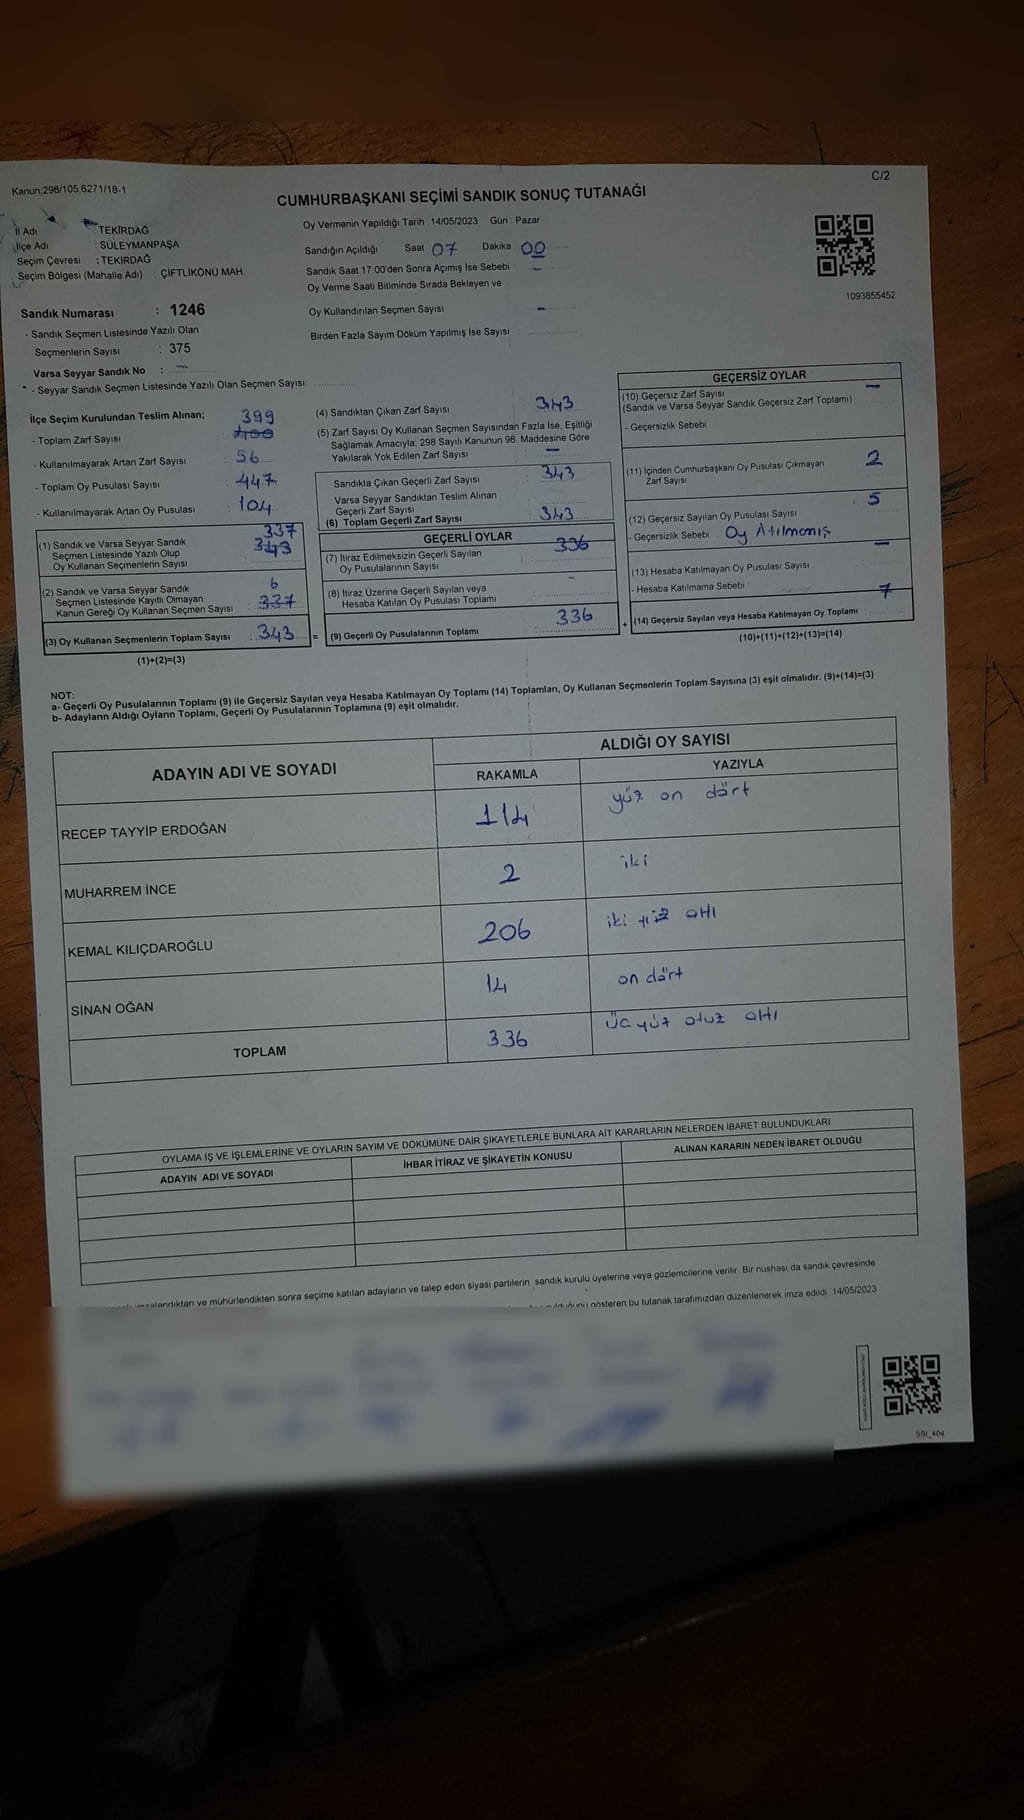 Kanun:298/105;6271/18-1
C/2
CUMHURBAŞKANI SEÇİMİ SANDIK SONUÇ TUTANAĞI
İl Adı : TEKİRDAĞ
İlçe Adı : SÜLEYMANPAŞA
Seçim Çevresi : TEKİRDAĞ
Seçim Bölgesi (Mahalle Adı) : ÇİFTLİKÖNÜ MAH.
Sandık Numarası : 1246
- Sandık Seçmen Listesinde Yazılı Olan
Seçmenlerin Sayısı : 375
Varsa Seyyar Sandık No : -
- Seyyar Sandık Seçmen Listesinde Yazılı Olan Seçmen Sayısı:
Oy Vermenin Yapıldığı Tarih : 14/05/2023 Gün : Pazar
Sandığın Açıldığı Saat 07 Dakika 00
Sandık Saat 17:00'den Sonra Açımış İse Sebebi : -
Oy Verme Saati Bitiminde Sırada Bekleyen ve
Oy Kullandırılan Seçmen Sayısı : -
Birden Fazla Sayım Döküm Yapılmış İse Sayısı :
1093855452
İlçe Seçim Kurulundan Teslim Alınan;
399
- Toplam Zarf Sayısı : 400
- Kullanılmayarak Artan Zarf Sayısı : 56
- Toplam Oy Pusulası Sayısı : 447
- Kullanılmayarak Artan Oy Pusulası : 104
337
(1) Sandık ve Varsa Seyyar Sandık
Seçmen Listesinde Yazılı Olup : 343
Oy Kullanan Seçmenlerin Sayısı
6
(2) Sandık ve Varsa Seyyar Sandık
Seçmen Listesinde Kayıtlı Olmayan
Kanun Gereği Oy Kullanan Seçmen Sayısı : 337
(3) Oy Kullanan Seçmenlerin Toplam Sayısı : 343
(1)+(2)=(3)
(4) Sandıktan Çıkan Zarf Sayısı : 343
(5) Zarf Sayısı Oy Kullanan Seçmen Sayısından Fazla İse, Eşitliği
Sağlamak Amacıyla; 298 Sayılı Kanunun 98. Maddesine Göre
Yakılarak Yok Edilen Zarf Sayısı : -
Sandıkta Çıkan Geçerli Zarf Sayısı : 343
Varsa Seyyar Sandıktan Teslim Alınan
Geçerli Zarf Sayısı :
(6) Toplam Geçerli Zarf Sayısı : 343
GEÇERLİ OYLAR
(7) İtiraz Edilmeksizin Geçerli Sayılan
Oy Pusulalarının Sayısı : 336
(8) İtiraz Üzerine Geçerli Sayılan veya
Hesaba Katılan Oy Pusulası Toplamı : -
= (9) Geçerli Oy Pusulalarının Toplamı : 336
GEÇERSİZ OYLAR
(10) Geçersiz Zarf Sayısı : -
(Sandık ve Varsa Seyyar Sandık Geçersiz Zarf Toplamı)
- Geçersizlik Sebebi :
(11) İçinden Cumhurbaşkanı Oy Pusulası Çıkmayan : 2
Zarf Sayısı
(12) Geçersiz Sayılan Oy Pusulası Sayısı : 5
- Geçersizlik Sebebi : Oy Atılmamış
(13) Hesaba Katılmayan Oy Pusulası Sayısı : -
- Hesaba Katılmama Sebebi :
+ (14) Geçersiz Sayılan veya Hesaba Katılmayan Oy Toplamı : 7
(10)+(11)+(12)+(13)=(14)
NOT:
a- Geçerli Oy Pusulalarının Toplamı (9) ile Geçersiz Sayılan veya Hesaba Katılmayan Oy Toplamı (14) Toplamları, Oy Kullanan Seçmenlerin Toplam Sayısına (3) eşit olmalıdır. (9)+(14)=(3)
b- Adayların Aldığı Oyların Toplamı, Geçerli Oy Pusulalarının Toplamına (9) eşit olmalıdır.
ADAYIN ADI VE SOYADI ALDIĞI OY SAYISI
RAKAMLA YAZIYLA
RECEP TAYYİP ERDOĞAN 114 yüz on dört
MUHARREM İNCE 2 iki
KEMAL KILIÇDAROĞLU 206 iki yüz altı
SİNAN OĞAN 14 on dört
TOPLAM 336 üç yüz otuz altı
OYLAMA İŞ VE İŞLEMLERİNE VE OYLARIN SAYIM VE DÖKÜMÜNE DAİR ŞİKAYETLERLE BUNLARA AİT KARARLARIN NELERDEN İBARET BULUNDUKLARI
ADAYIN ADI VE SOYADI İHBAR İTİRAZ VE ŞİKAYETİN KONUSU ALINAN KARARIN NEDEN İBARET OLDUĞU
imzalandıktan ve mühürlendikten sonra seçime katılan adayların ve talep eden siyasi partilerin sandık kurulu üyelerine veya gözlemcilerine verilir. Bir nushası da sandık çevresinde
olduğunu gösteren bu tutanak tarafımızdan düzenlenerek imza edildi. 14/05/2023
SSI_404